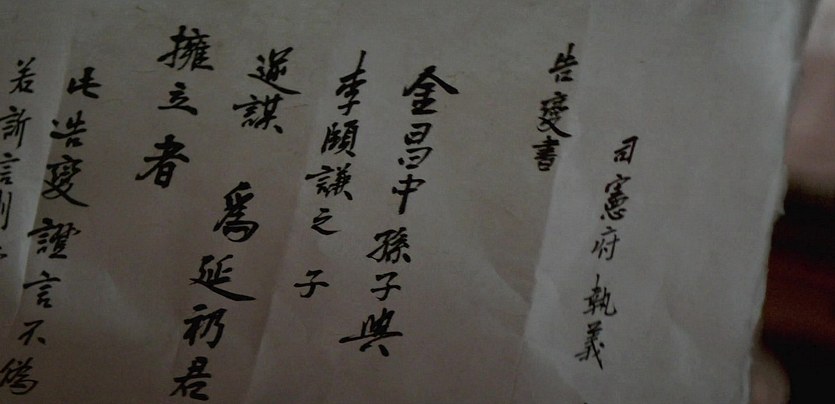 司憲府 執義
告變書
金昌中 孫子與
李頤謙之 子
逆謀 爲延礽君
擁立者
此誥變證言不偽
若訴言則